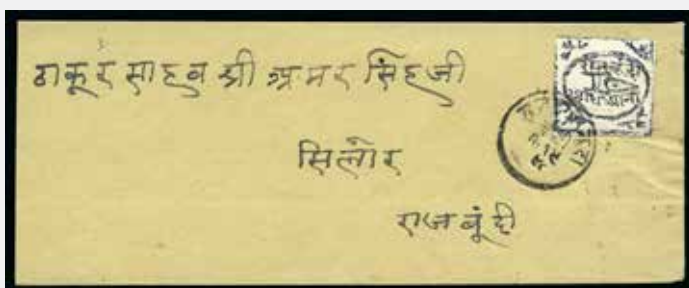 ठाकुर साहब श्री अमर सिंहजी
सिलोर
राज बूंदी